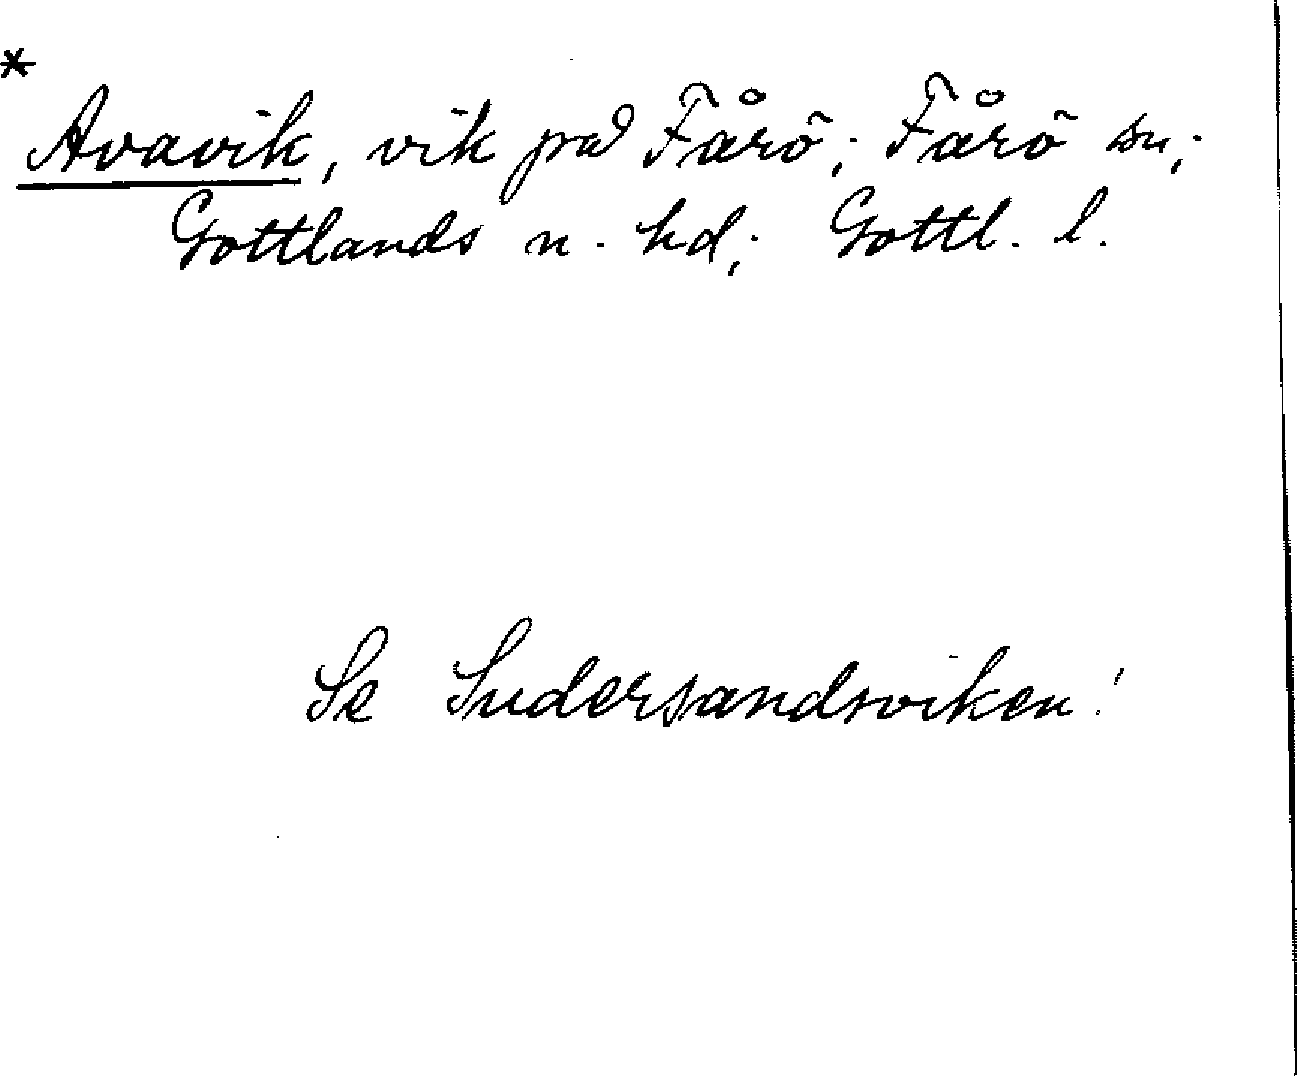 *
Avavik, vik på Fårö; Fårö sn;
Gottlands n. hd; Gottl. l.
Se Sudersandsviken!